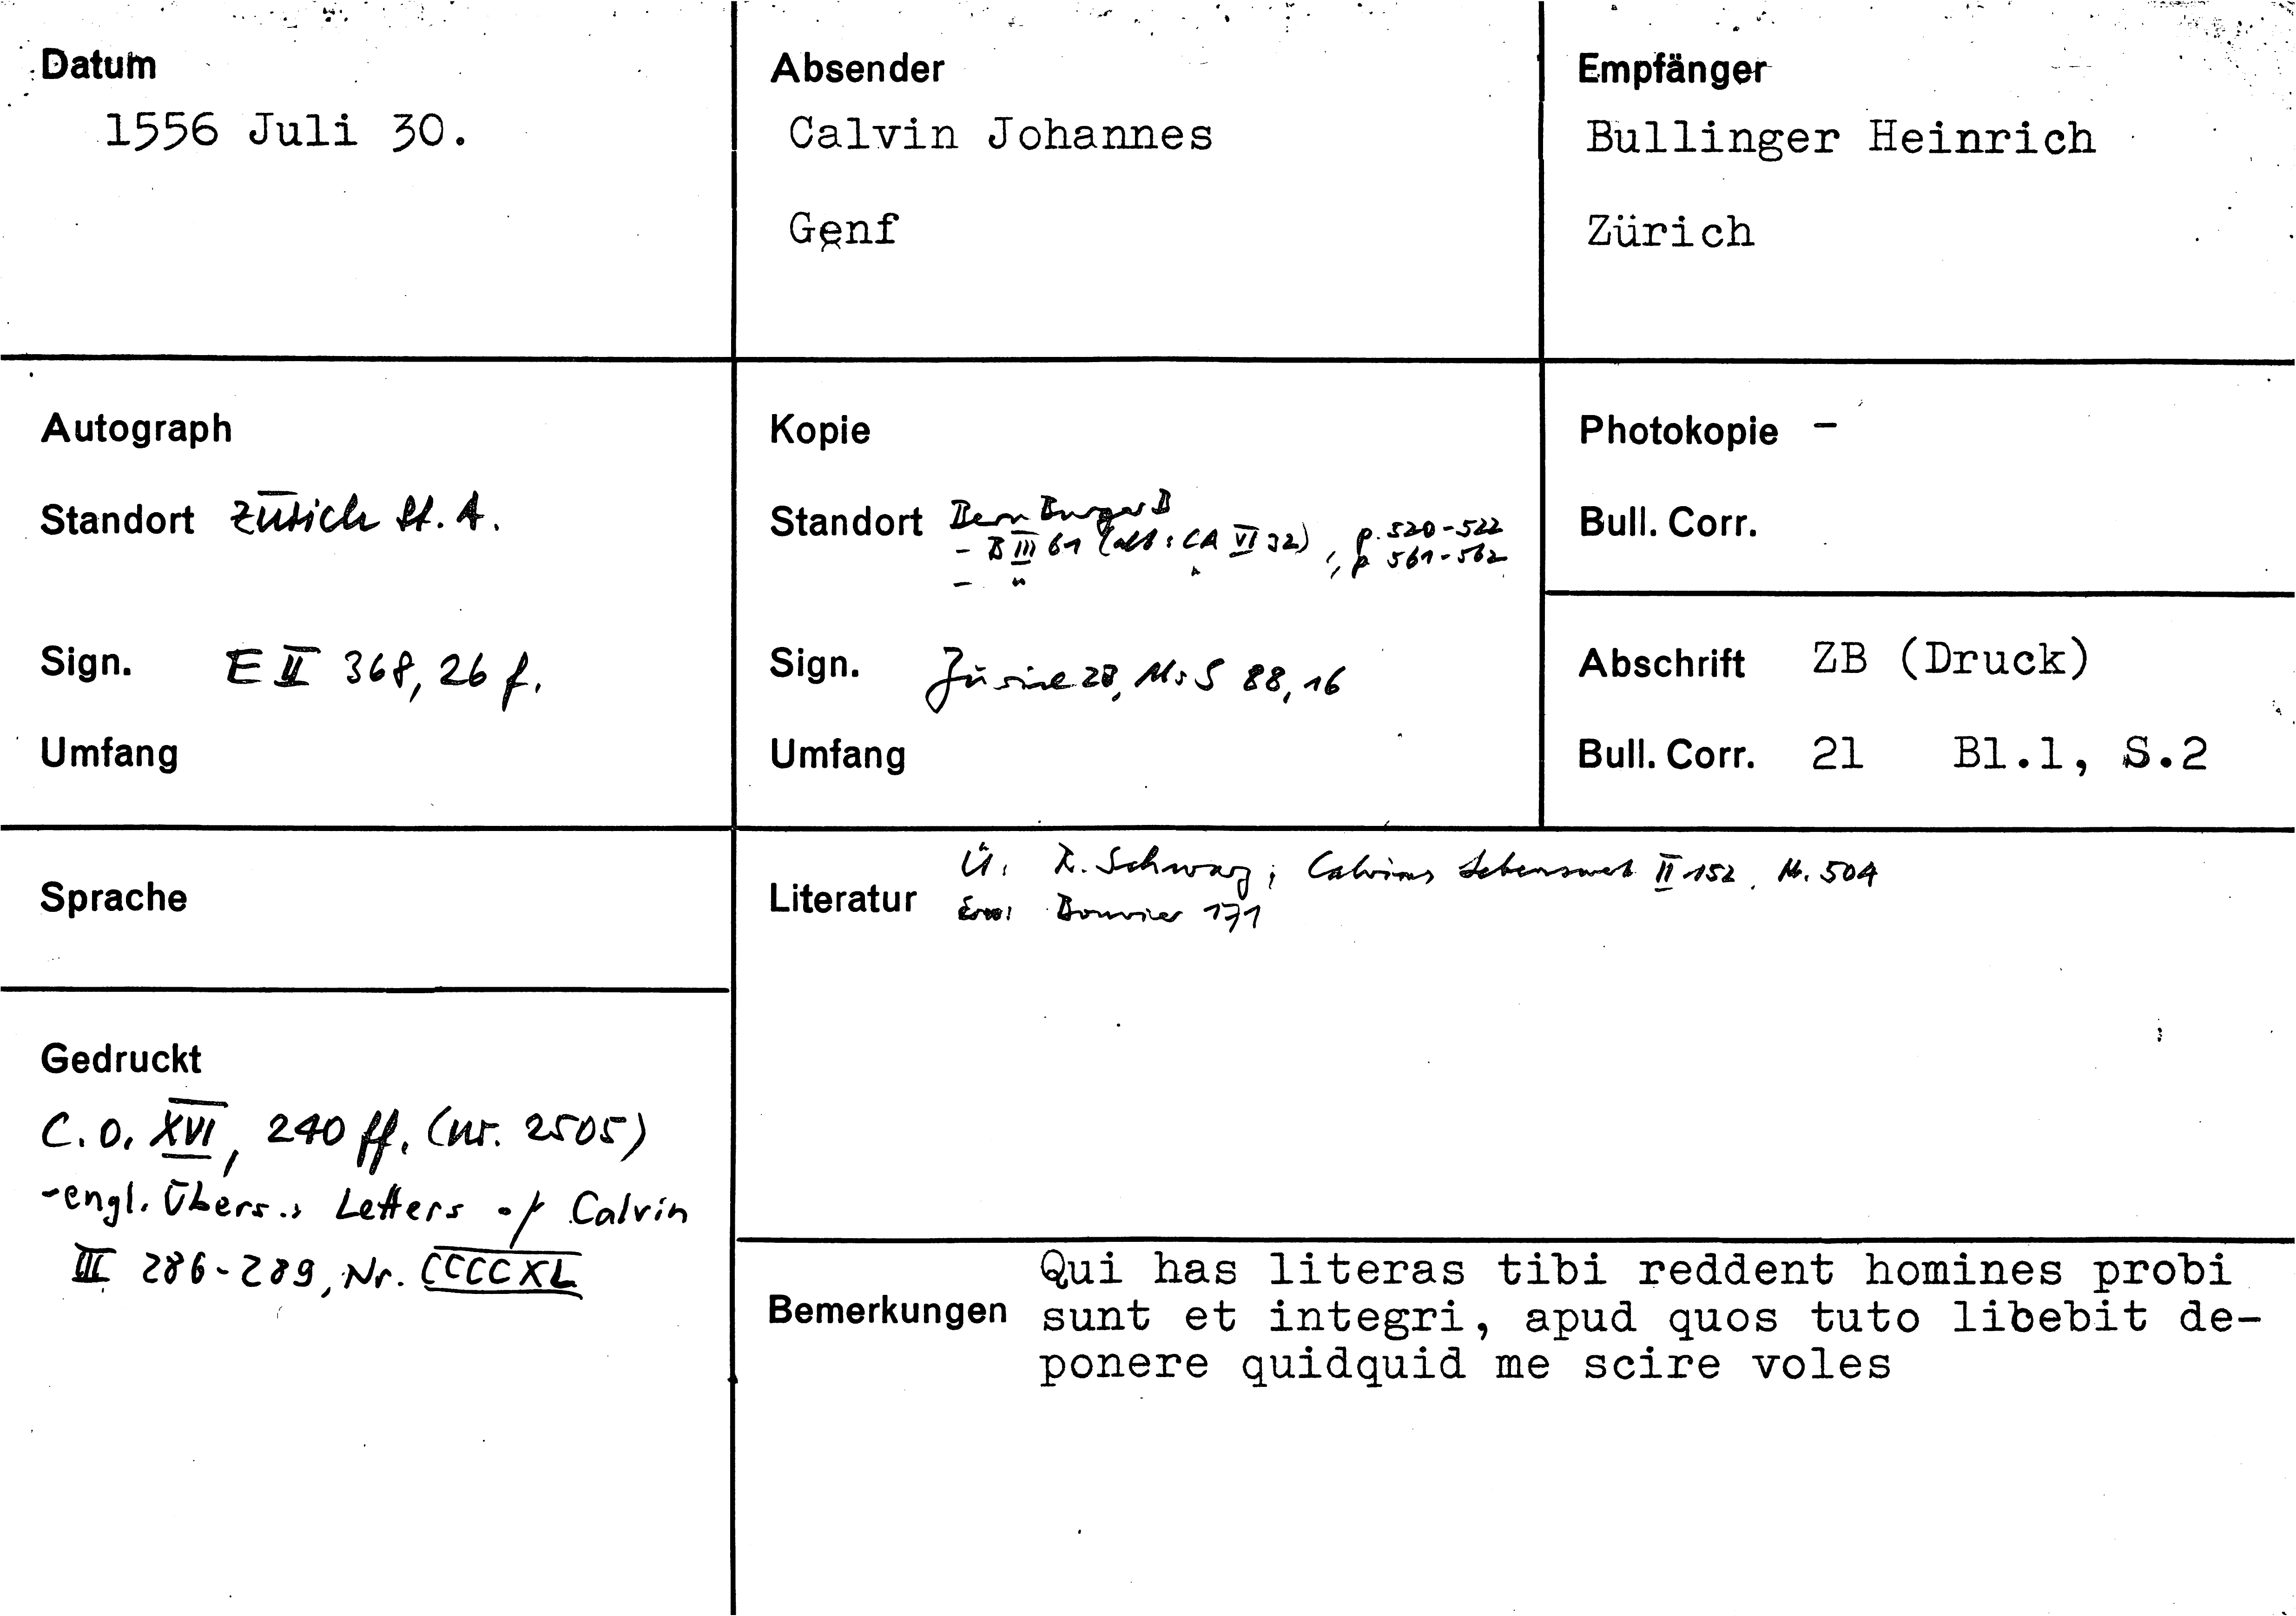 Datum
1556 Juli 30.
Absender
Calvin Johannes
Genf
Empfänger
Bullinger Heinrich
Zürich
Autograph
Standort Zürich St. A.
Sign. E II 368, 26 f.
Umfang
Kopie
Standort Bern Burger B
- B III 61 (alt: CA VI 32), p. 520-522
- " " , p 561-562
Sign. Zürich ZB, Ms S 88, 16
Umfang
Photokopie -
Bull. Corr.
Abschrift ZB (Druck)
Bull. Corr. 21 Bl.1, S.2
Sprache
Literatur Ü: R. Schwarz, Calvins Lebenswerk II 152, Nr. 504
Erw: Bouvier 171
Gedruckt
C.O. XVI, 240 ff. (nr. 2505)
- engl. Übers.: Letters of Calvin
III 286-289, Nr. CCCCXL
Bemerkungen
Qui has literas tibi reddent homines probi
sunt et integri, apud quos tuto libebit de-
ponere quidquid me scire voles